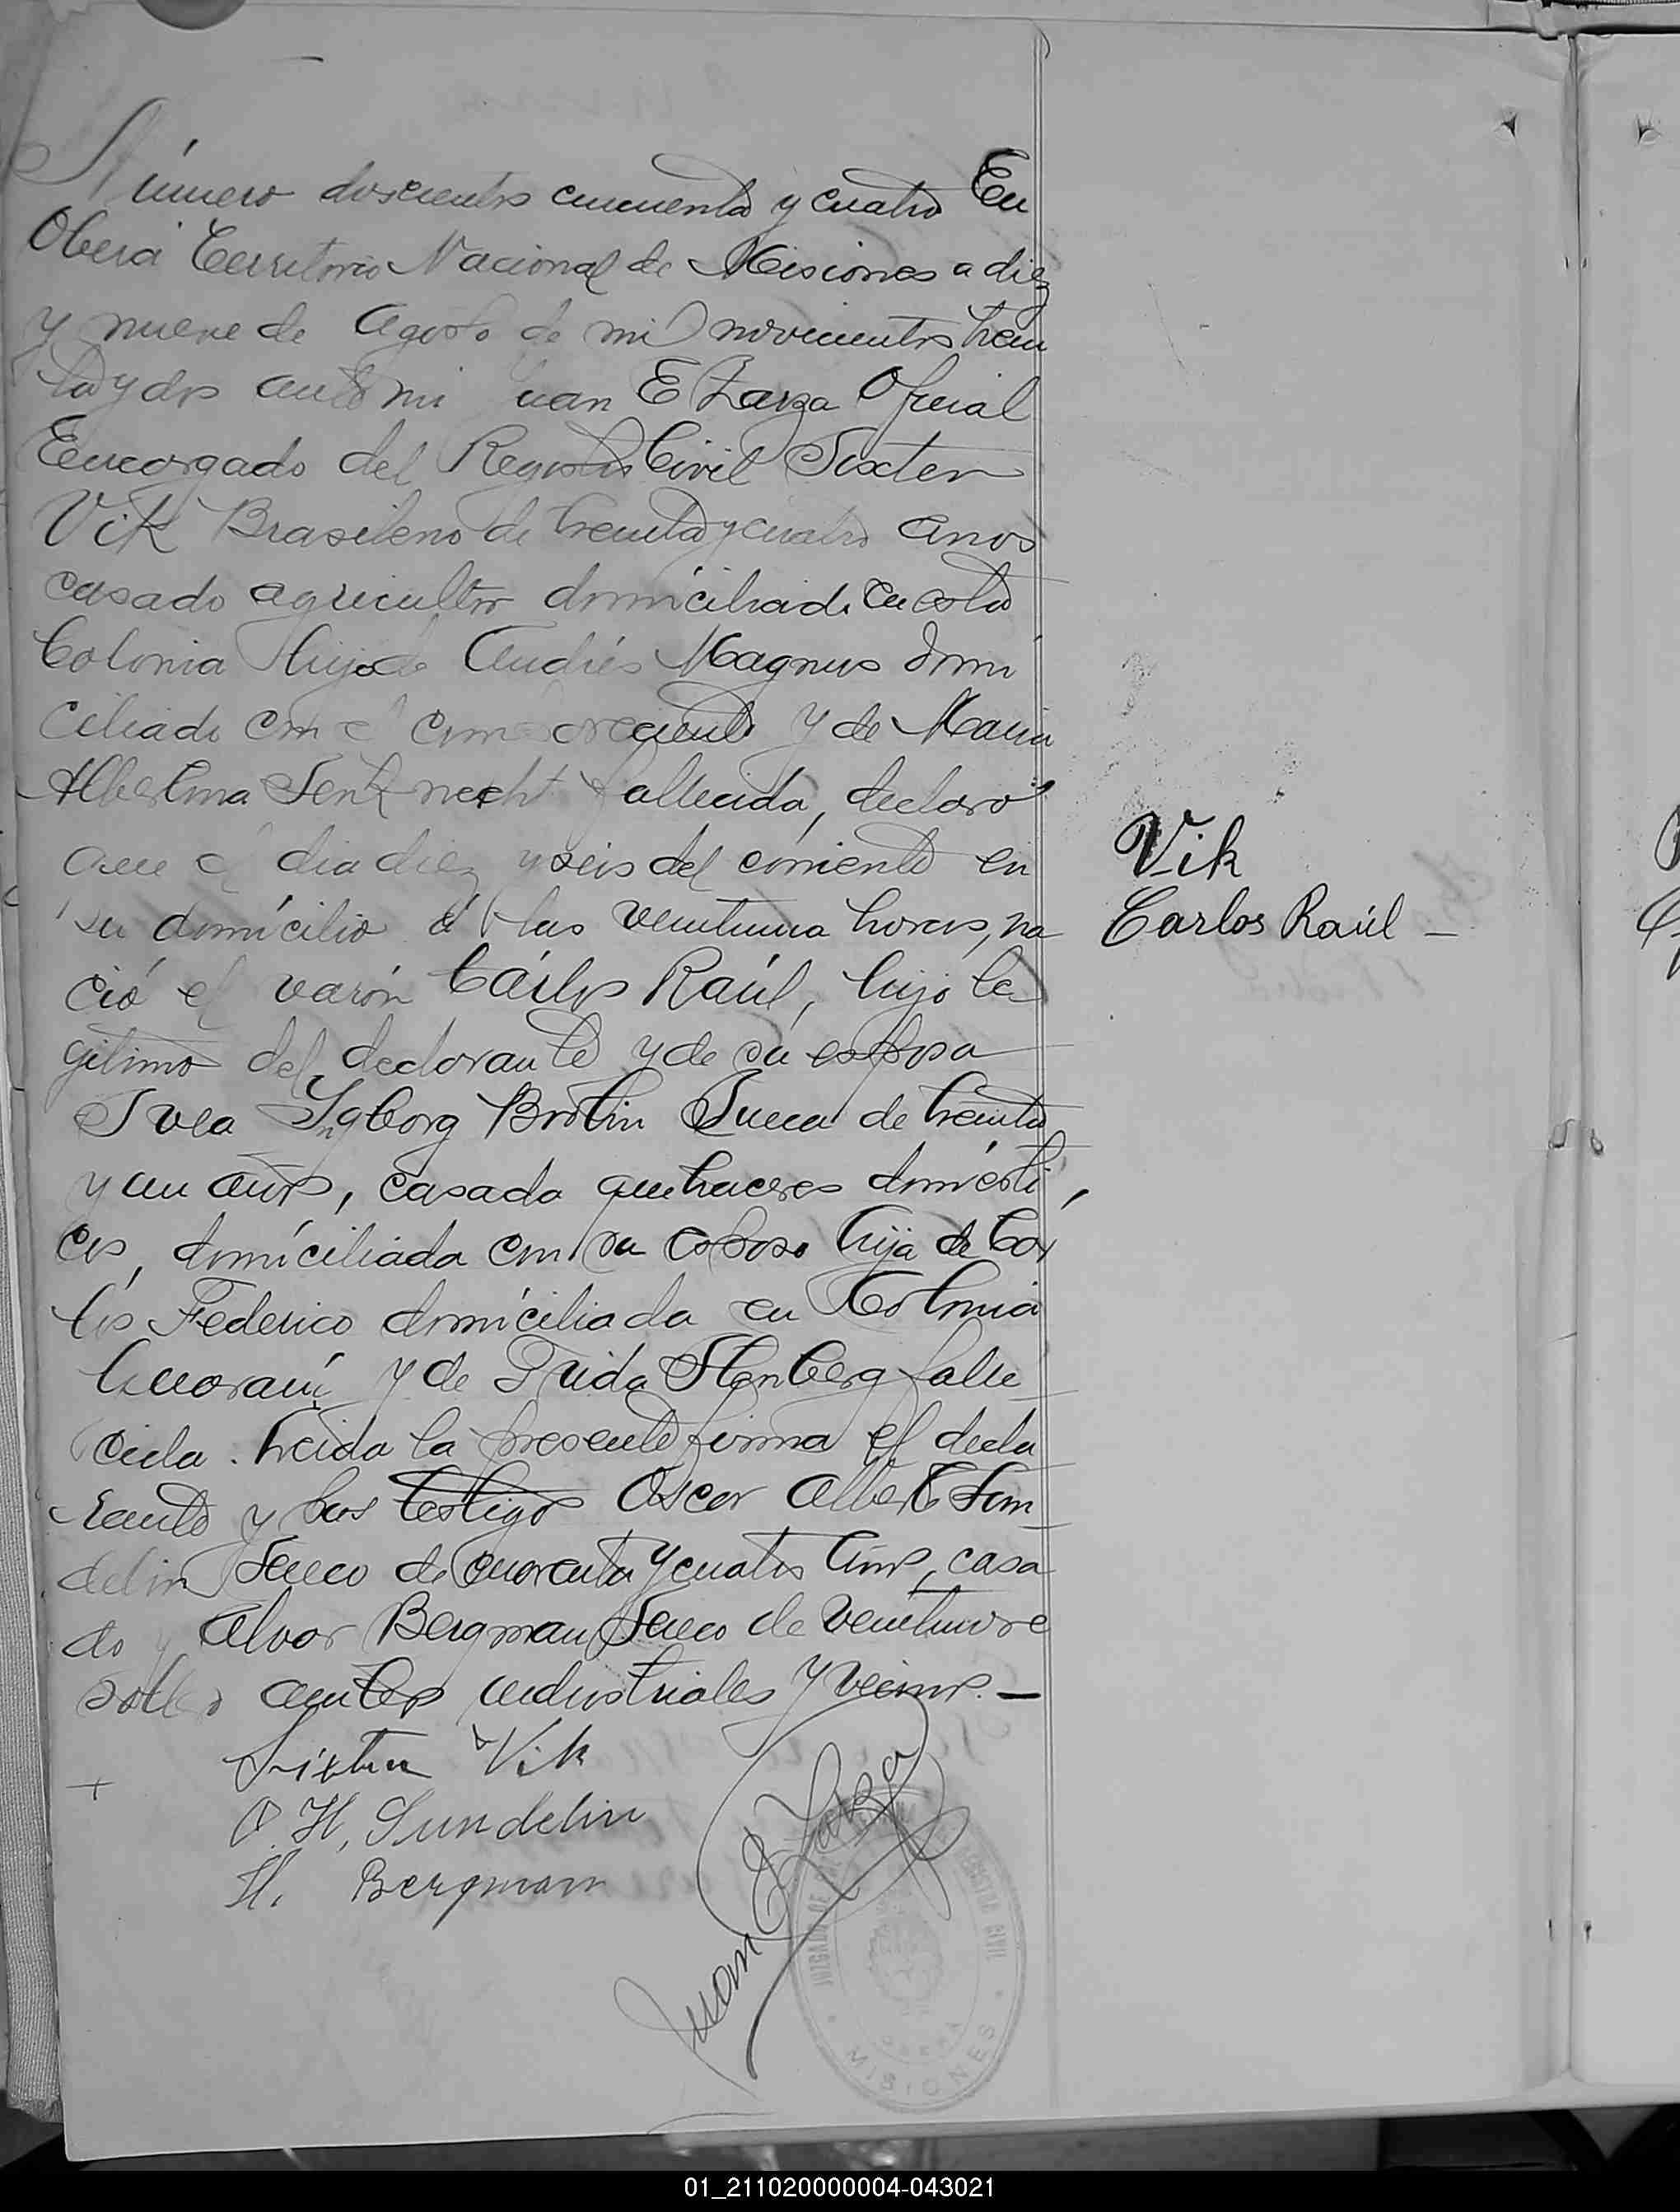 Número doscientos cincuenta y cuatro En
Oberá Territorio Nacional de Misiones a diez
y nueve de Agosto de mil novecientos trein
ta y dos ante mi Juan E Zarza Oficial
Encargado del Registro Civil Sixten
Vik Brasileno de treinta y cuatro años
casado agricultor domiciliado en esta
Colonia hijo de Andrés Magnus domi
ciliado con el y de Maria
Albertina fallecida, declaró
Que el dia diez y seis del corriente en
su domicilio á las veintiuna horas, na
ció el varón Cárlos Raúl, hijo le
gitimo del declarante y de su esposa
Svea Ingborg Brolin Sueca de treinta
y un años, casada quehaceres domésti
cos, domiciliada con su esposo hija de Car
los Federico domiciliada en Colonia
Guaraní y de Frida Stenberg falle
cida. Leida la presente firma el decla
rante y los testigos Oscar Albert Sun
delin Sueco de cuarenta y cuatro años, casa
do y Alvar Bergman Sueco de veintinueve
soltero ambos industriales y vecinos. —
Sixten Vik
O. H, Sundelin
H. Bergman
Juan E Zarza
JUZGADO DE PAZ
REGISTRO CIVIL
OBERA
MISIONES
Vik
Carlos Raúl —
01_211020000004-043021